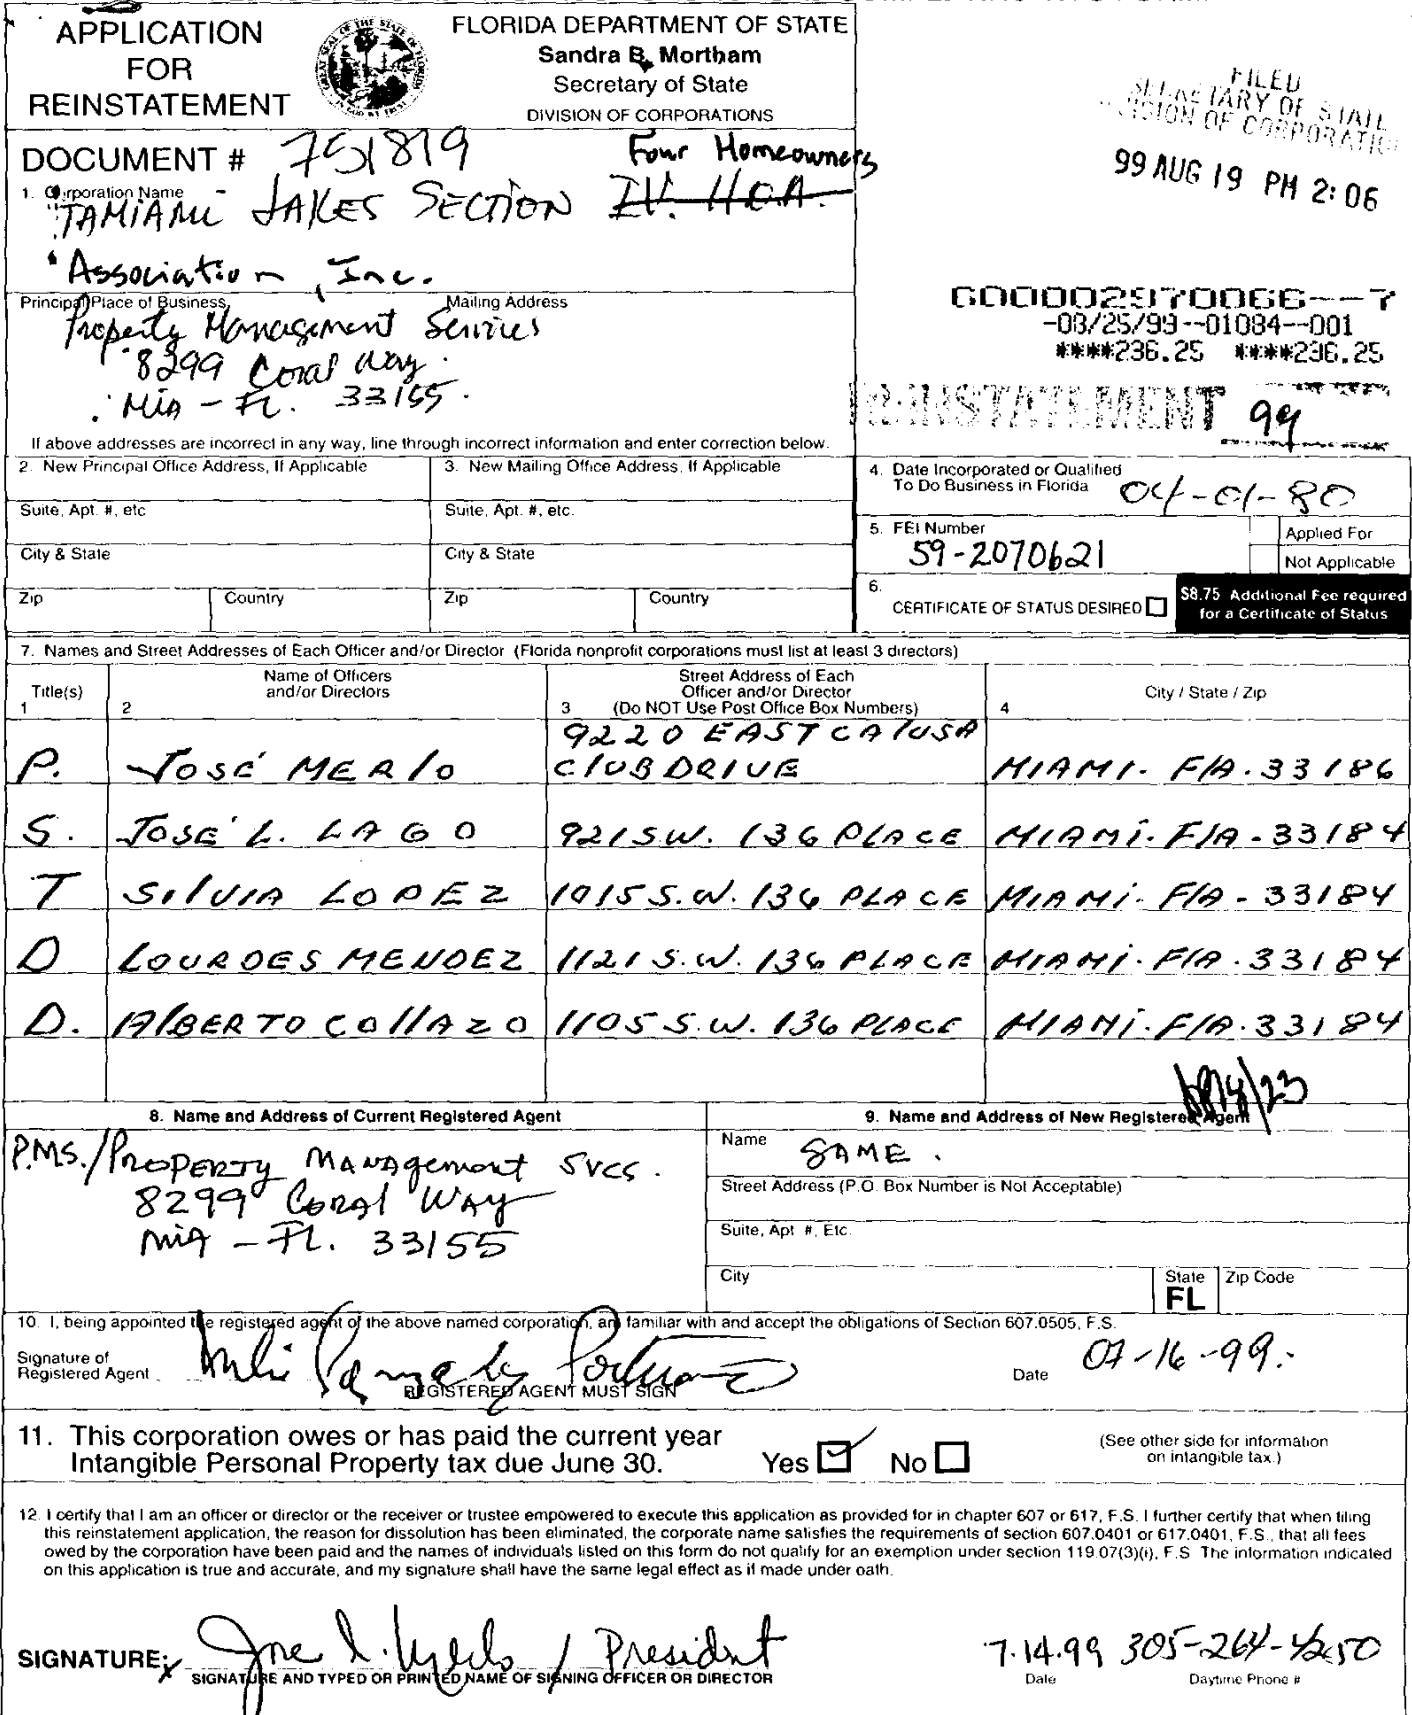 APPLICATION
FOR
REINSTATEMENT
FLORIDA DEPARTMENT OF STATE
Sandra B. Mortham
Secretary of State
DIVISION OF CORPORATIONS
FILED
SECRETARY OF STATE
DIVISION OF CORPORATIONS
99 AUG 19 PM 2:06
DOCUMENT # 751819
Four Homeowners
1. Corporation Name
TAMIAMI LAKES SECTION IV. H.O.A.
Association, Inc.
Principal Place of Business
Mailing Address
Property Management Services
8299 Coral Way
Mia - FL. 33155.
600002970066--7
-08/25/99--01084--001
****236.25 ****236.25
REINSTATEMENT 99
If above addresses are incorrect in any way, line through incorrect information and enter correction below.
2. New Principal Office Address, If Applicable
3. New Mailing Office Address, If Applicable
Suite, Apt. #, etc
Suite, Apt. #, etc.
City & State
City & State
Zip
Country
Zip
Country
4. Date Incorporated or Qualified
To Do Business in Florida 04-01-80
5. FEI Number
59-2070621
Applied For
Not Applicable
6.
CERTIFICATE OF STATUS DESIRED
$8.75 Additional Fee required
for a Certificate of Status
7. Names and Street Addresses of Each Officer and/or Director (Florida nonprofit corporations must list at least 3 directors)
Title(s)
1
Name of Officers
and/or Directors
2
Street Address of Each
Officer and/or Director
3 (Do NOT Use Post Office Box Numbers)
City / State / Zip
4
P. JOSÉ MERlO 9220 EAST CAlUSA
ClUB DRIVE MIAMI. FlA. 33186
S. JOSÉ L. LAGO 921 S.W. 136 PLACE MIAMI. FlA - 33184
T SIlVIA LOPEZ 1015 S.W. 136 PLACE MIAMI. FlA - 33184
D LOURDES MENDEZ 1121 S.W. 136 PLACE MIAMI. FlA. 33184
D. AlBERTO COllAZO 1105 S.W. 136 PLACE MIAMI. FlA. 33184
8. Name and Address of Current Registered Agent
P.M.S./PROPERTY MANAgement SVCS.
8299 CORAl WAY
MIA - FL. 33155
9. Name and Address of New Registered Agent
Name SAME.
Street Address (P.O. Box Number is Not Acceptable)
Suite, Apt #, Etc.
City
State
FL
Zip Code
10. I, being appointed the registered agent of the above named corporation, am familiar with and accept the obligations of Section 607.0505, F.S.
Signature of
Registered Agent
REGISTERED AGENT MUST SIGN
Date 07-16-99.
11. This corporation owes or has paid the current year
Intangible Personal Property tax due June 30.
Yes No
(See other side for information
on intangible tax.)
12. I certify that I am an officer or director or the receiver or trustee empowered to execute this application as provided for in chapter 607 or 617, F.S. I further certify that when filing
this reinstatement application, the reason for dissolution has been eliminated, the corporate name satisfies the requirements of section 607.0401 or 617.0401, F.S., that all fees
owed by the corporation have been paid and the names of individuals listed on this form do not qualify for an exemption under section 119.07(3)(i), F.S The information indicated
on this application is true and accurate, and my signature shall have the same legal effect as if made under oath.
SIGNATURE: / President
SIGNATURE AND TYPED OR PRINTED NAME OF SIGNING OFFICER OR DIRECTOR
7.14.99 305-264-4250
Date
Daytime Phone #